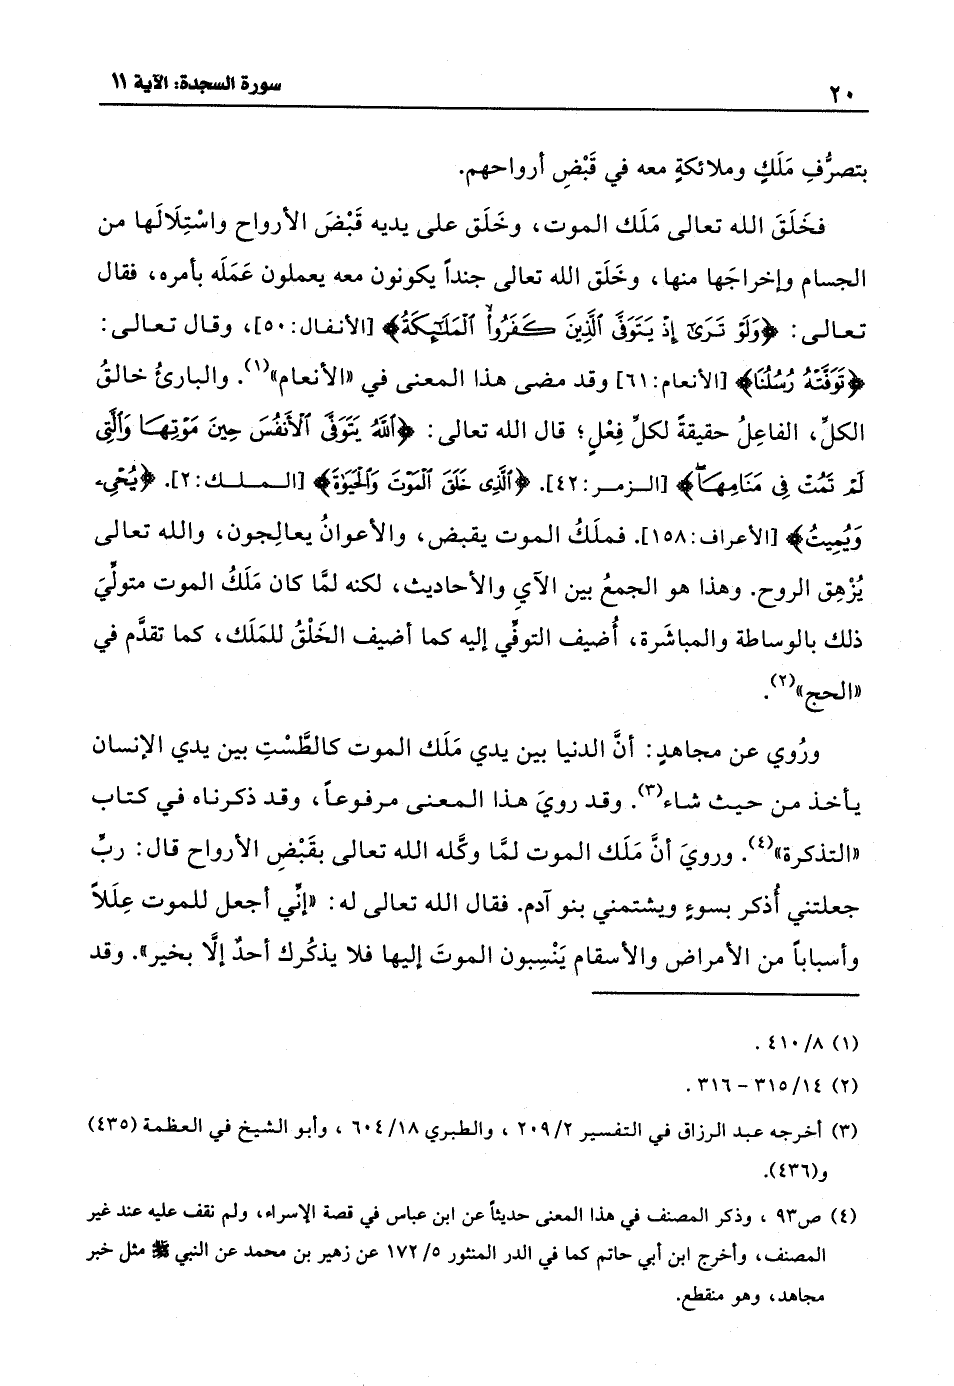 سورة السجدة: الآية ١١
٢٠
بتصرُّفِ مَلَكٍ وملائكةٍ معه في قَبْضِ أرواحهم.
فخَلَقَ الله تعالى مَلَك الموت، وخَلَق على يديه قَبْضَ الأرواح واسْتِلَالَها من
الجسام وإخراجَها منها، وخَلَق الله تعالى جنداً يكونون معه يعملون عَمَلَه بأمره، فقال
تعالى: ﴿وَلَوْ تَرَىٰٓ إِذْ يَتَوَفَّى ٱلَّذِينَ كَفَرُوا۟ ۙ ٱلْمَلَـٰٓئِكَةُ﴾ [الأنفال:٥٠]، وقال تعالى:
﴿تَوَفَّتْهُ رُسُلُنَا﴾ [الأنعام:٦١] وقد مضى هذا المعنى في «الأنعام»(١). والبارئُ خالقُ
الكلِّ، الفاعِلُ حقيقةً لكلِّ فِعْلٍ؛ قال الله تعالى: ﴿ٱللَّهُ يَتَوَفَّى ٱلْأَنفُسَ حِينَ مَوْتِهَا وَٱلَّتِى
لَمْ تَمُتْ فِى مَنَامِهَا ۖ﴾ [الزمر:٤٢]. ﴿ٱلَّذِى خَلَقَ ٱلْمَوْتَ وَٱلْحَيَوٰةَ﴾ [الملك:٢]. ﴿يُحْىِۦ
وَيُمِيتُ﴾ [الأعراف:١٥٨]. فملَكُ الموت يقبض، والأعوانُ يعالِجون، والله تعالى
يُزْهِق الروح. وهذا هو الجمعُ بين الآيِ والأحاديث، لكنه لمَّا كان مَلَكُ الموت متولِّيَ
ذلك بالوساطة والمباشَرة، أُضيف التوفِّي إليه كما أضيف الخَلْقُ للمَلَك، كما تقدَّم في
«الحج»(٢).
ورُوي عن مجاهدٍ: أنَّ الدنيا بين يدي مَلَك الموت كالطَّسْتِ بين يدي الإنسان
يأخذ من حيث شاء(٣). وقد رويَ هذا المعنى مرفوعاً، وقد ذكرناه في كتاب
«التذكرة»(٤). ورويَ أنَّ مَلَك الموت لمَّا وكَّله الله تعالى بقَبْضِ الأرواح قال: ربِّ
جعلتني أُذكر بسوءٍ ويشتمني بنو آدم. فقال الله تعالى له: «إنِّي أجعل للموت عِلَلاً
وأسباباً من الأمراض والأسقام يَنْسِبون الموتَ إليها فلا يذكُرك أحدٌ إلَّا بخير». وقد
(١) ٨/ ٤١٠ .
(٢) ١٤/ ٣١٥ - ٣١٦ .
(٣) أخرجه عبد الرزاق في التفسير ٢/ ٢٠٩ ، والطبري ١٨/ ٦٠٤ ، وأبو الشيخ في العظمة (٤٣٥)
و(٤٣٦).
(٤) ص٩٣ ، وذكر المصنف في هذا المعنى حديثاً عن ابن عباس في قصة الإسراء، ولم نقف عليه عند غير
المصنف، وأخرج ابن أبي حاتم كما في الدر المنثور ٥/ ١٧٢ عن زهير بن محمد عن النبي ﷺ مثل خبر
مجاهد، وهو منقطع.